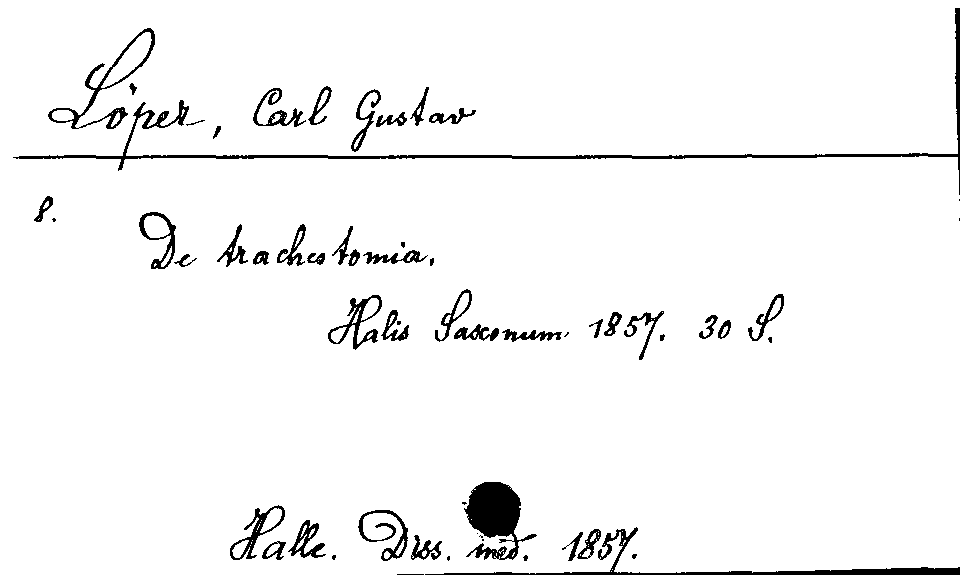 Löper, Carl Gustav
8.
De tracheotomia.
Halis Saxonum 1857. 30 S.
Halle. Diss. med. 1857.